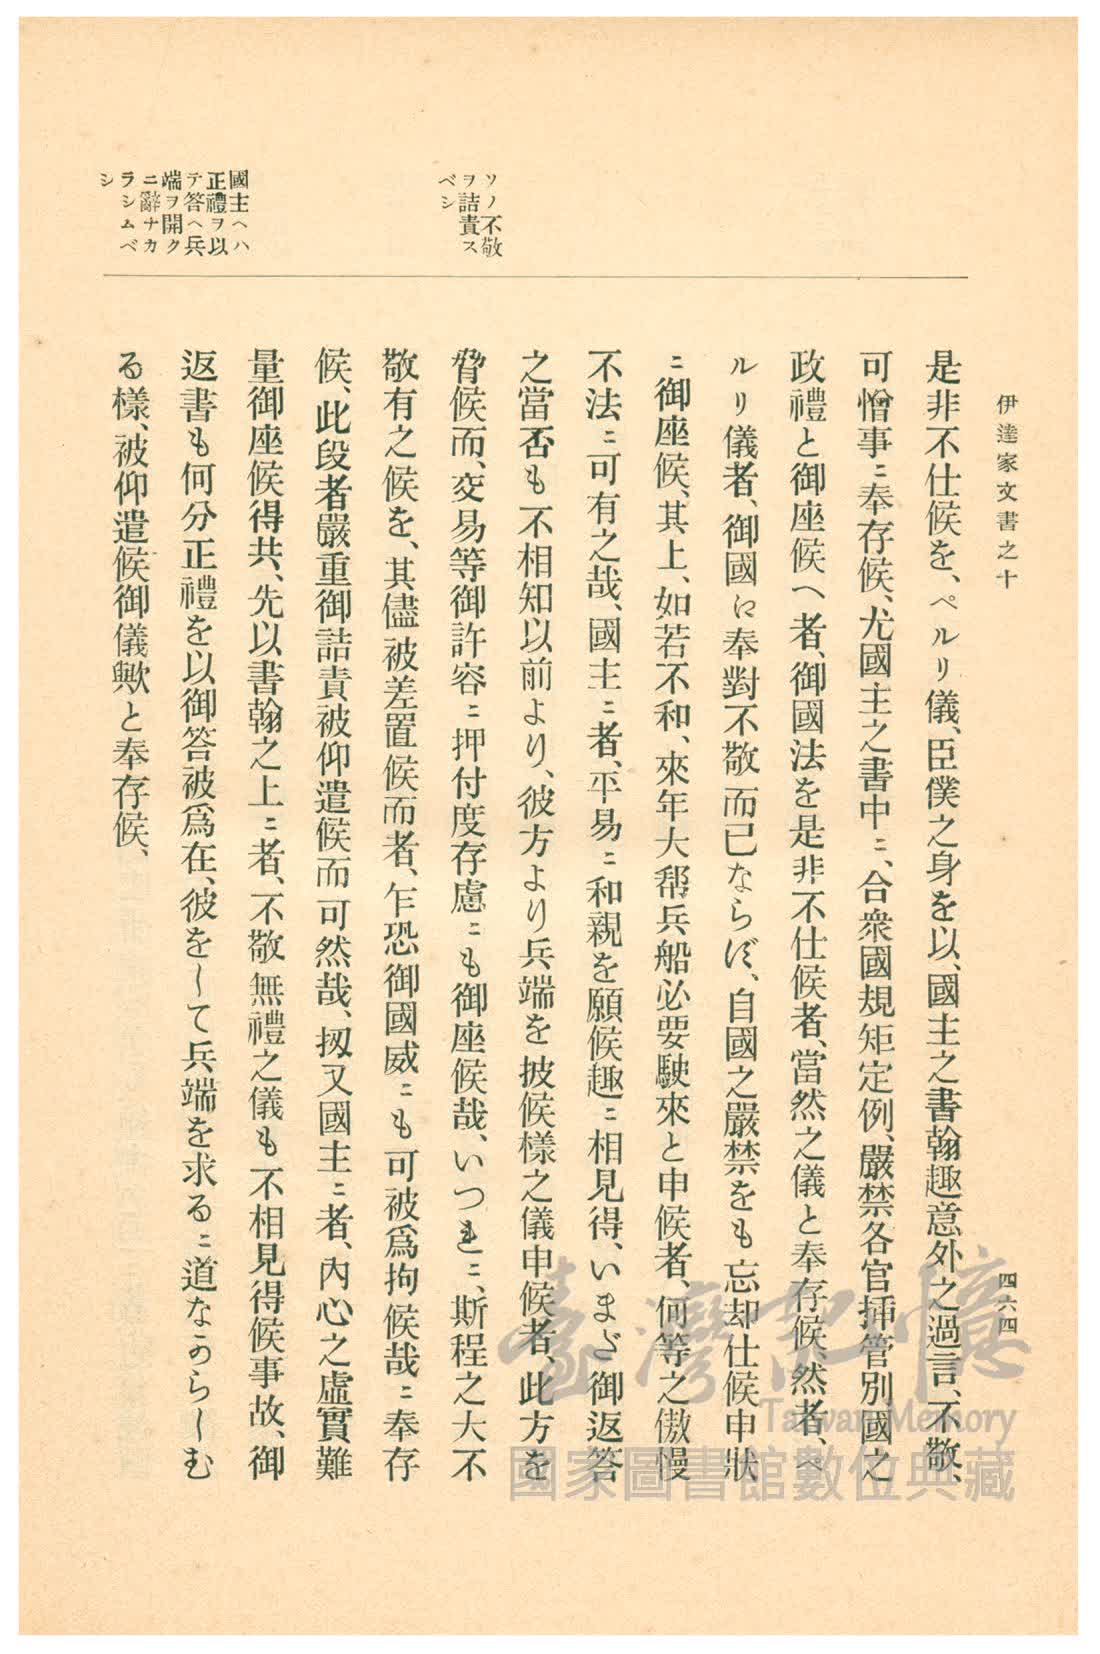 伊達家文書之十
四六四
ソノ不敬
ヲ詰責ス
ベシ
國主ヘハ
正禮ヲ以
テ答ヘ兵
端ヲ開ク
ニ辭ナカ
ラシムベ
シ
是非不仕候を、ペルリ儀、臣僕之身を以、國主之書翰趣意外之過言、不敬、
可憎事ニ奉存候、尤國主之書中ニ、合衆國規矩定例、嚴禁各官揷管別國之
政禮と御座候ヘ者、御國法を是非不仕候者、當然之儀と奉存候、然者、ペ
ルリ儀者、御國江奉對不敬而已ならば、自國之嚴禁をも忘却仕候申狀
ニ御座候、其上、如若不和、來年大幇兵船必要駛來と申候者、何等之傲慢
不法ニ可有之哉、國主ニ者、平易ニ和親を願候趣ニ相見得、いまだ御返答
之當否も不相知以前より、彼方より兵端を披候樣之儀申候者、此方を
脅候而、交易等御許容ニ押付度存慮ニも御座候哉、いつれニ、斯程之大不
敬有之候を、其儘被差置候而者、乍恐御國威ニも可被爲拘候哉ニ奉存
候、此段者嚴重御詰責被仰遣候而可然哉、扨又國主ニ者、內心之虛實難
量御座候得共、先以書翰之上ニ者、不敬無禮之儀も不相見得候事故、御
返書も何分正禮を以御答被爲在、彼をして兵端を求るニ道なからしむ
る樣、被仰遣候御儀歟と奉存候、
臺灣記憶
Taiwan Memory
國家圖書館數位典藏